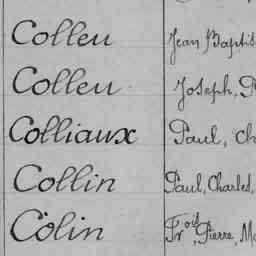 Colleu Jean Baptis
Colleu Joseph, P
Colliaux Paul, Ch
Collin Paul, Charles,
Colin Fr^ois, Pierre, Ma